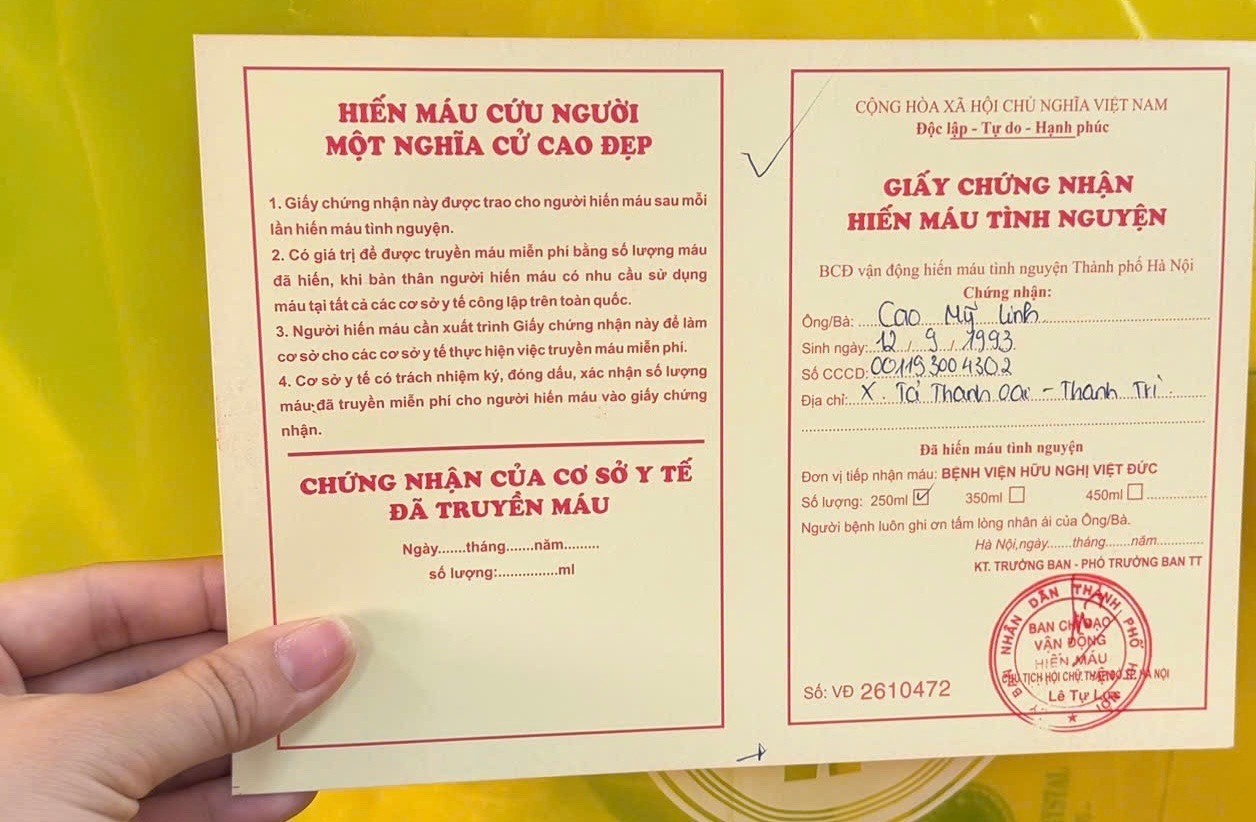 HIẾN MÁU CỨU NGƯỜI
MỘT NGHĨA CỬ CAO ĐẸP
1. Giấy chứng nhận này được trao cho người hiến máu sau mỗi
lần hiến máu tình nguyện.
2. Có giá trị để được truyền máu miễn phí bằng số lượng máu
đã hiến, khi bản thân người hiến máu có nhu cầu sử dụng
máu tại tất cả các cơ sở y tế công lập trên toàn quốc.
3. Người hiến máu cần xuất trình Giấy chứng nhận này để làm
cơ sở cho các cơ sở y tế thực hiện việc truyền máu miễn phí.
4. Cơ sở y tế có trách nhiệm ký, đóng dấu, xác nhận số lượng
máu đã truyền miễn phí cho người hiến máu vào giấy chứng
nhận.
CHỨNG NHẬN CỦA CƠ SỞ Y TẾ
ĐÃ TRUYỀN MÁU
Ngày.......tháng.......năm.........
số lượng:................ml
CỘNG HÒA XÃ HỘI CHỦ NGHĨA VIỆT NAM
Độc lập - Tự do - Hạnh phúc
GIẤY CHỨNG NHẬN
HIẾN MÁU TÌNH NGUYỆN
BCĐ vận động hiến máu tình nguyện Thành phố Hà Nội
Chứng nhận:
Ông/Bà: Cao Mỹ Linh
Sinh ngày: 12 / 9 / 1993
Số CCCD: 001193004302
Địa chỉ: X. Tả Thanh Oai - Thanh Trì
Đã hiến máu tình nguyện
Đơn vị tiếp nhận máu: BỆNH VIỆN HỮU NGHỊ VIỆT ĐỨC
Số lượng: 250ml ☑ 350ml ☐ 450ml ☐
Người bệnh luôn ghi ơn tấm lòng nhân ái của Ông/Bà.
Hà Nội,ngày.......tháng.......năm............
KT. TRƯỞNG BAN - PHÓ TRƯỞNG BAN TT
BAN CHỈ ĐẠO
VẬN ĐỘNG
HIẾN MÁU
CHỦ TỊCH HỘI CHỮ THẬP ĐỎ TP. HÀ NỘI
Lê Tự Lực
Số: VĐ 2610472